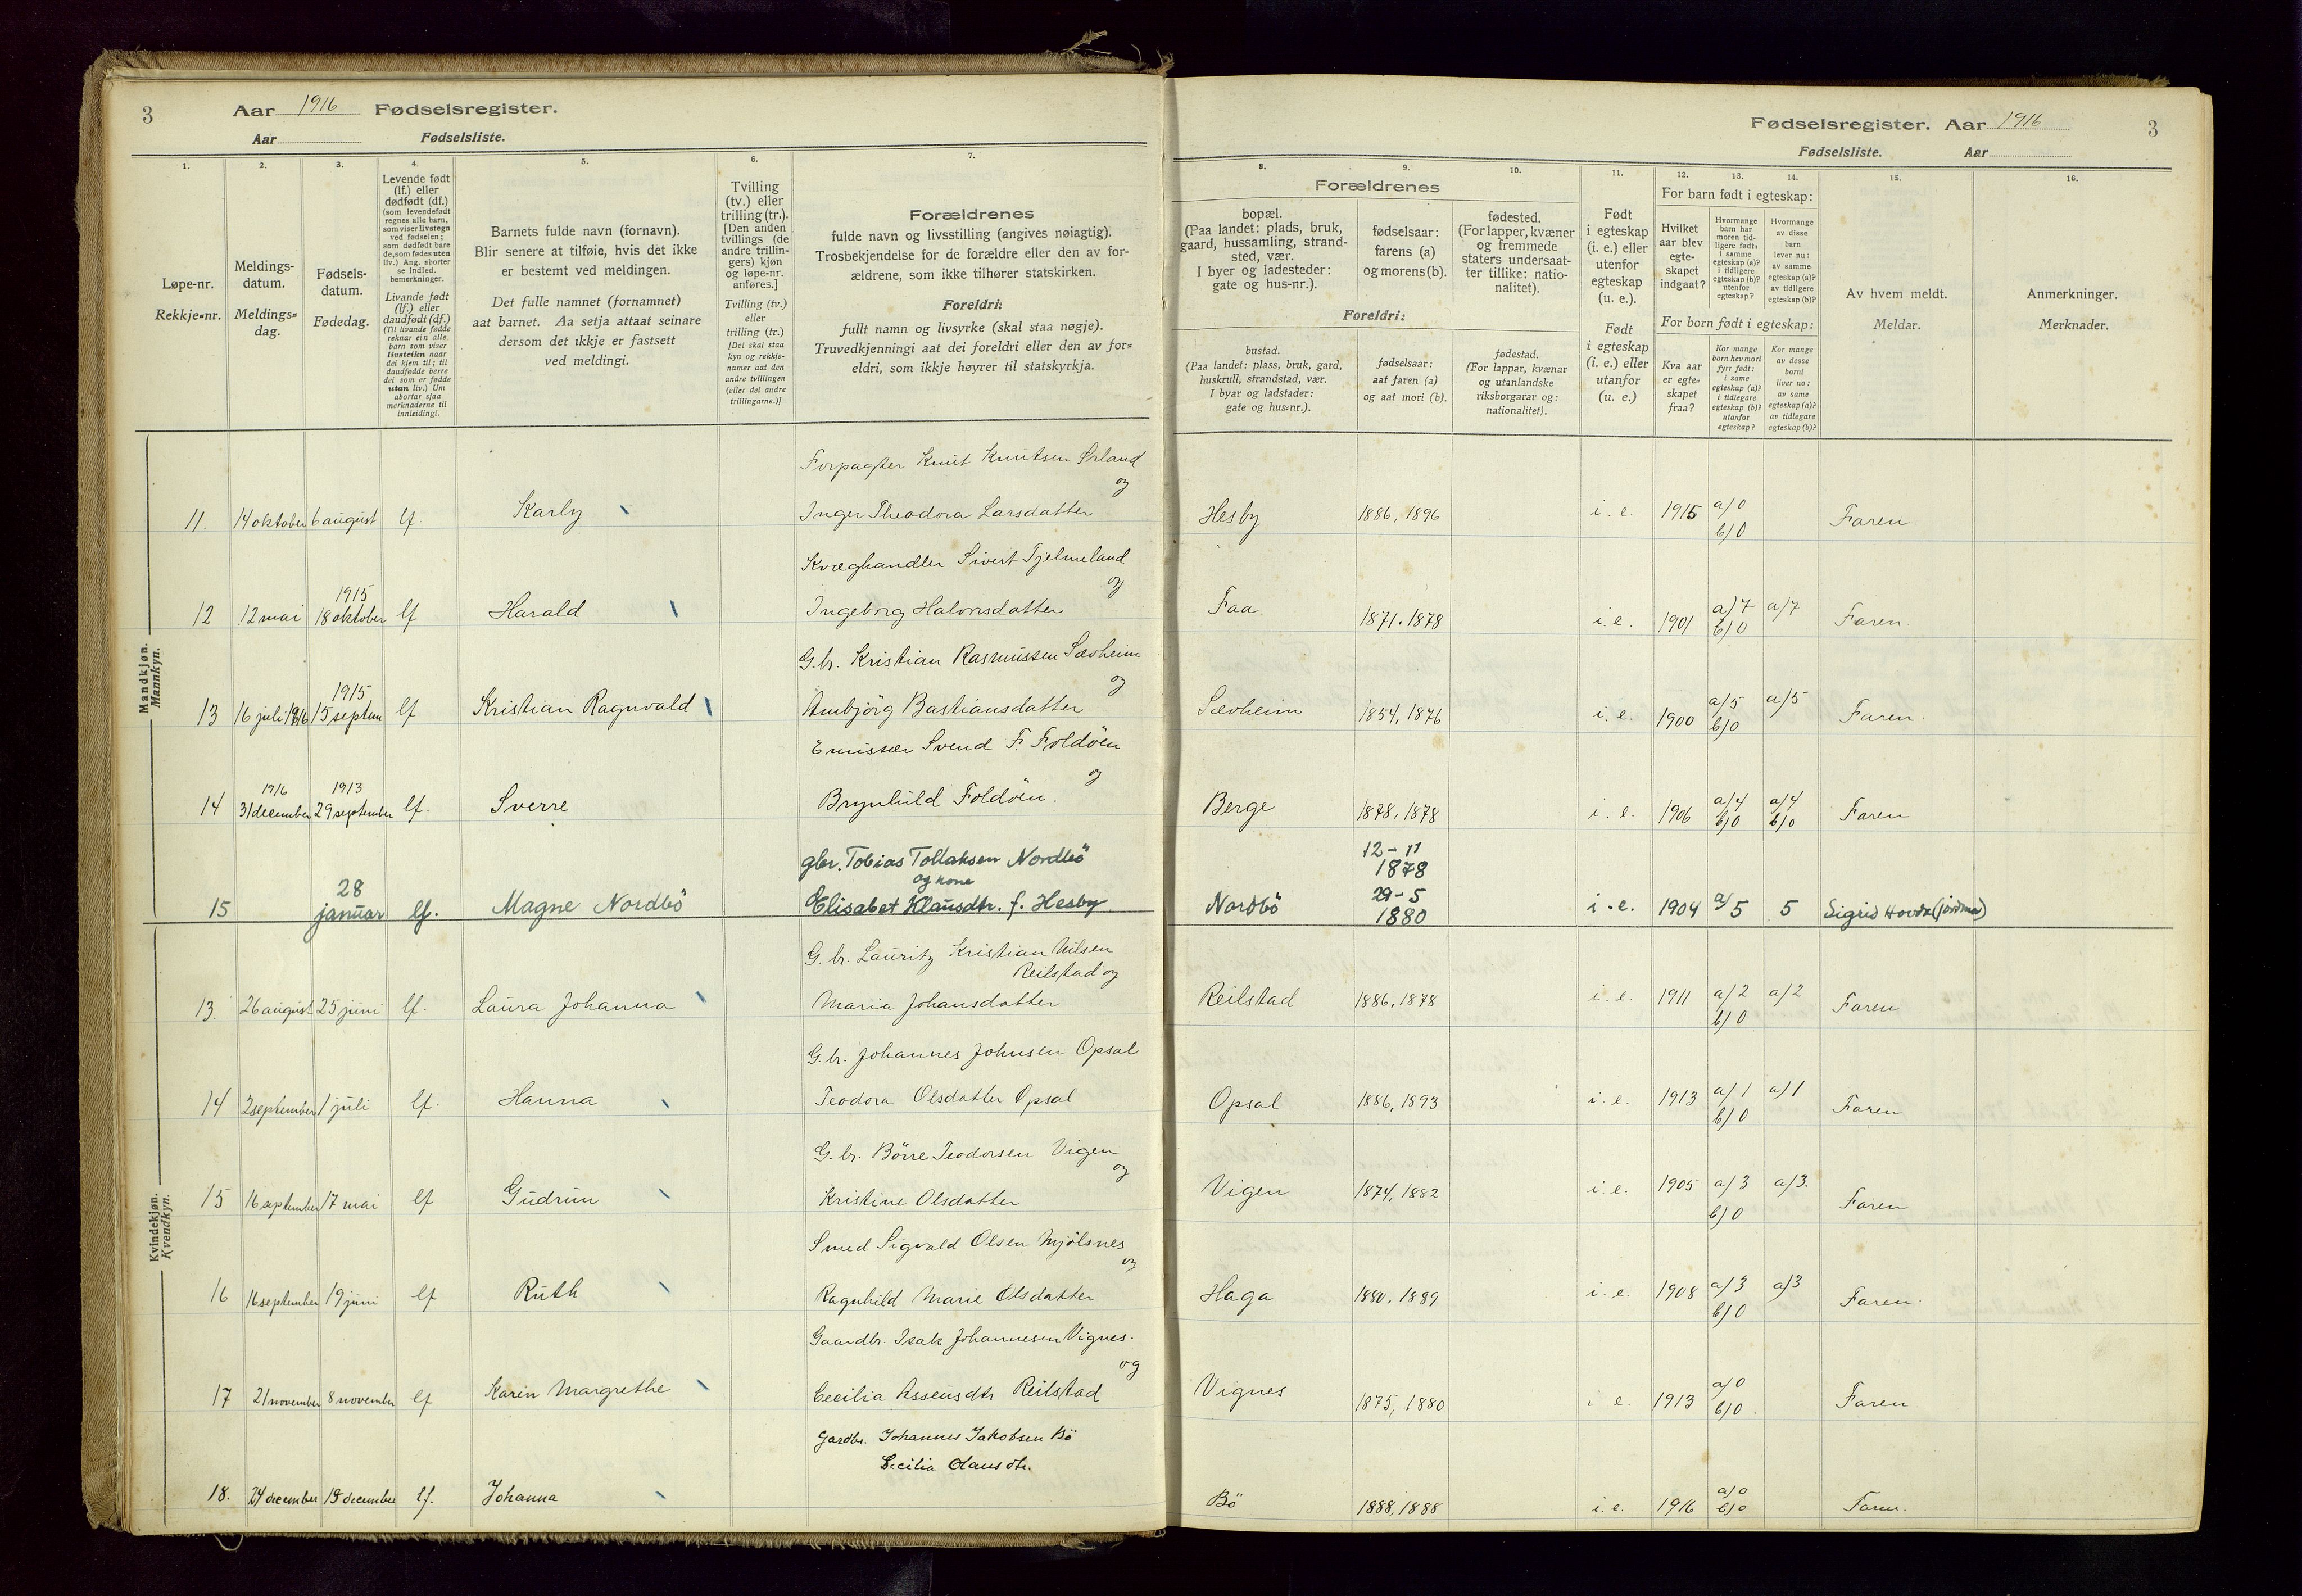 3
Aar 1916 Fødselsregister.
Aar Fødselsliste.
1.
2.
3.
4.
5.
6.
7.
Løpe-nr.
Rekkje=nr.
Meldings-
datum.
Meldings=
dag.
Fødsels-
datum.
Fødedag.
Levende født
(lf.) eller
dødfødt (df.)
(som levendefødt
regnes alle barn,
som viser livstegn
ved fødselen;
som dødfødt bare
de, som fødes uten
liv.) Ang. aborter
se indled.
bemerkninger.
Livande født
(lf.) eller
daudfødt (df.)
(Til livande fødde
reknar ein alle
barn som viser
livsteikn naar
dei kjem til; til
daudfødde berre
dei som er fødde
utan liv.) Um
abortar sjaa
merknaderne til
innleidingi.
Barnets fulde navn (fornavn).
Blir senere at tilføie, hvis det ikke
er bestemt ved meldingen.
Det fulle namnet (fornamnet)
aat barnet. Aa setja attaat seinare
dersom det ikkje er fastsett
ved meldingi.
Tvilling
(tv.) eller
trilling (tr.).
[Den anden
tvillings (de
andre trillin-
gers) kjøn
og løpe-nr.
anføres.]
Tvilling (tv.)
eller
trilling (tr.)
[Det skal staa
kyn og rekkje-
numer aat den
andre tvillingen
(eller dei andre
trillingarne.)]
Forældrenes
fulde navn og livsstilling (angives nøiagtig).
Trosbekjendelse for de forældre eller den av for-
ældrene, som ikke tilhører statskirken.
Foreldri:
fullt namn og livsyrke (skal staa nøgje).
Truvedkjenningi aat dei foreldri eller den av for=
eldri, som ikkje høyrer til statskyrkja.
Fødselsregister. Aar 1916
3
Fødselsliste. Aar
8.
9.
10.
11.
12.
13.
14.
15.
16.
Forældrenes
bopæl.
(Paa landet: plads, bruk,
gaard, hussamling, strand-
sted, vær.
I byer og ladesteder:
gate og hus-nr.).
fødselsaar:
farens (a)
og morens (b).
fødested.
(For lapper, kvæner
og fremmede
staters undersaat-
ter tillike: natio-
nalitet).
Foreldri:
bustad.
(Paa landet: plass, bruk, gard,
huskrull, strandstad, vær.
I byar og ladstader:
gate og hus=nr.).
fødselsaar:
aat faren (a)
og aat mori (b).
fødestad.
(For lappar, kvænar
og utanlandske
riksborgarar og:
nationalitet).
Født
i egteskap
(i. e.) eller
utenfor
egteskap
(u. e.).
Født
i egteskap
(i. e.) eller
utanfor
(u. e.)
For barn født i egteskap:
Hvilket
aar blev
egte-
skapet
indgaat?
Hvormange
barn har
moren tid-
ligere født:
i samme
egteskap (a)?
i tidligere
egteskap (b)?
utenfor
egteskap?
Hvormange
av disse
barn
lever nu:
av samme
egteskap (a)?
av tidligere
egteskap (b)?
For born født i egteskap:
Kva aar
er egte=
skapet
fraa?
Kor mange
born hev mori
fyrr født:
i same
egteskap (a)?
i tidlegare
egteskap (b)?
utanfor
egteskap?
Kor mange
av desse
borni
liver no:
av same
egteskap (a)?
av tidlegare
egteskap (b)?
Av hvem meldt.
Meldar.
Anmerkninger.
Merknader.
Mandkjøn.
Mannkyn.
Forpagter Knut Knutsen Ørland
og
11. 14 oktober 6 august lf. Karly Inger Theodora Larsdatter Hesby 1886, 1896 i. e. 1915 a/0 b/0 Faren
Kvæghandler Sivert Tjelmeland
og
12 12 mai 1915 18 oktober lf Harald Ingeborg Halvorsdatter Faa 1871. 1878 i. e. 1901 a/7 b/0 a/7 Faren
G.br. Kristian Rasmussen Sævheim
og
13 16 juli 1916 1915 15 septem lf Kristian Ragnvald Ambjörg Bastiansdatter Sævheim 1854, 1876 i. e. 1900 a/5 b/0 a/5 Faren.
Emissær Svend F. Foldöen
og
14 1916 31 december 1913 29 september lf. Sverre Brynhild Foldöen. Berge 1878, 1878 i. e. 1906 a/4 b/0 a/4 b/0 Faren
gbr. Tobias Tollaksen Nordbö
og kone
15 28 januar lf. Magne Nordbö Elisabet Klausdtr. f. Hesby Nordbö 12-11 1878 29-5 1880 i. e. 1904 a/5 5 Sigrid Hovda (jordmor)
Kvindekjøn.
Kvendkyn.
G.br. Lauritz Kristian Nilsen
Reilstad og
13. 26 august 25 juni lf. Laura Johanna Maria Johansdatter Reilstad 1886, 1878 i. e. 1911 a/2 b/0 a/2 Faren
G.br. Johannes Johnsen Opsal
14 2 september 1 juli lf. Hanna Teodora Olsdatter Opsal Opsal 1886, 1893 i. e. 1913 a/1 b/0 a/1 Faren
G.br. Börre Teodorsen Vigen
og
15 16 september 17 mai lf Gudrun Kristine Olsdatter Vigen 1874, 1882 i. e. 1905 a/3 b/0 a/3. Faren
Smed Sigvald Olsen Mjölsnes
og
16 16 september 19 juni lf Ruth Ragnhild Marie Olsdatter Haga 1880, 1889 i. e. 1908 a/3 b/0 a/3 Faren.
Gaardbr. Isak Johannesen Vignes.
og
17 21 november 8 november lf Karin Margrethe Cecilia Assensdtr Reilstad Vignes 1875, 1880 i e. 1913 a/0 b/0. Faren
Gardbr. Johannes Jakobsen Bö
Cecilia Olausdtr.
18. 24 december 19 december lf. Johanna Bö 1888, 1888 i. e. 1916 a/0 b/0 Faren.